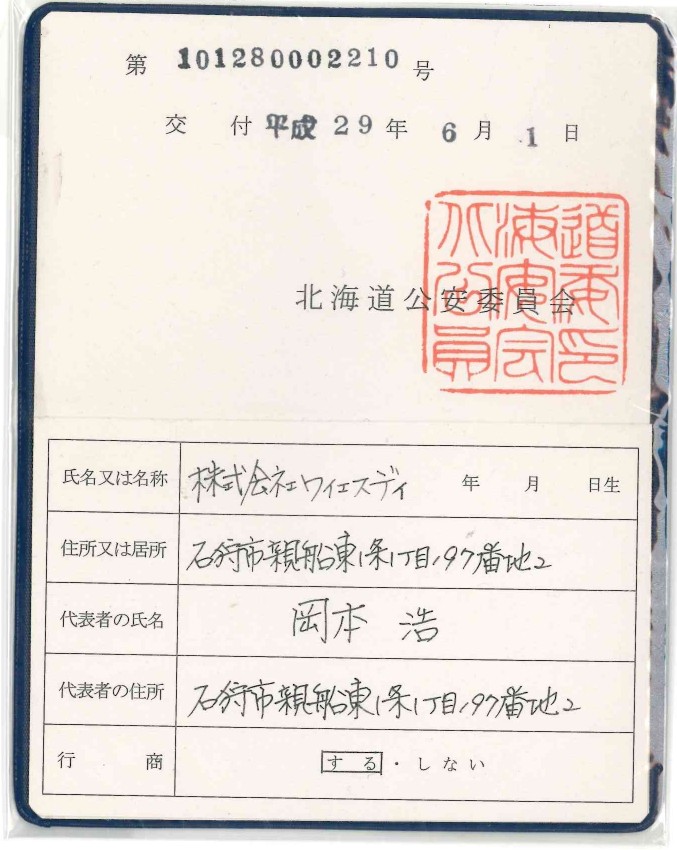 第 101280002210 号
交 付 平成 29 年 6 月 1 日
北海道公安委員会
北海道公安委員会印
氏名又は名称 株式会社ワイエスディ 年 月 日生
住所又は居所 石狩市親船東1条1丁目197番地2
代表者の氏名 岡本 浩
代表者の住所 石狩市親船東1条1丁目197番地2
行 商 する・しない